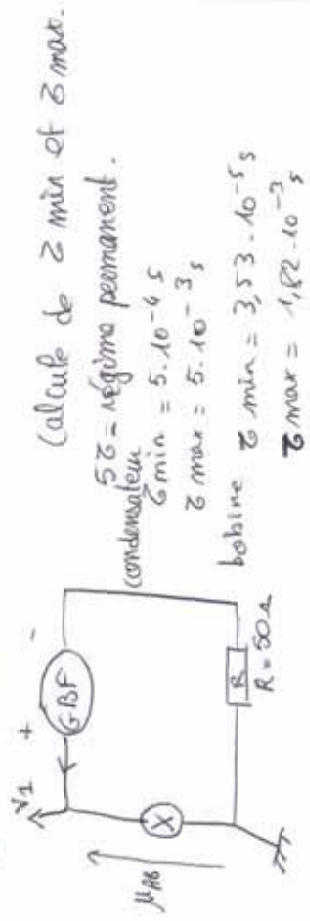 Calcule de τ min et τ max.
5τ = régime permanent.
condensateur
τ min = 5.10⁻⁴ s
τ max = 5.10⁻³ s
bobine τ min = 3,53.10⁻⁵ s
τ max = 1,82.10⁻³ s
V1
+
GBF
-
μAB
X
R
R = 50Ω